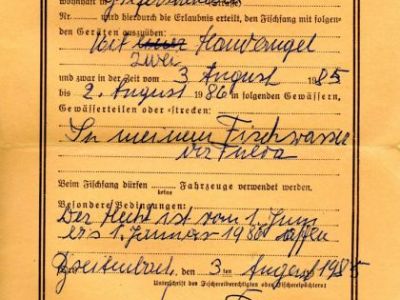 wohnhaft in
Nr. wird hierdurch die Erlaubnis erteilt, den Fischfang mit folgen-
den Geräten auszuüben:
Mit Handangel
zwei
und zwar in der Zeit vom 3 August 1985
bis 2. August 1986 in folgenden Gewässern,
Gewässerteilen oder =strecken:
In meinem Fischwasser
der Fulda
Beim Fischfang dürfen Fahrzeuge verwendet werden.
keine
Besondere Bedingungen:
Der Hecht ist vom 1. Juni
bis 1. Januar 1986 offen
Breitenbach, den 3 ten August 1985
Unterschrift des Fischereiberechtigten oder Fischereipächters